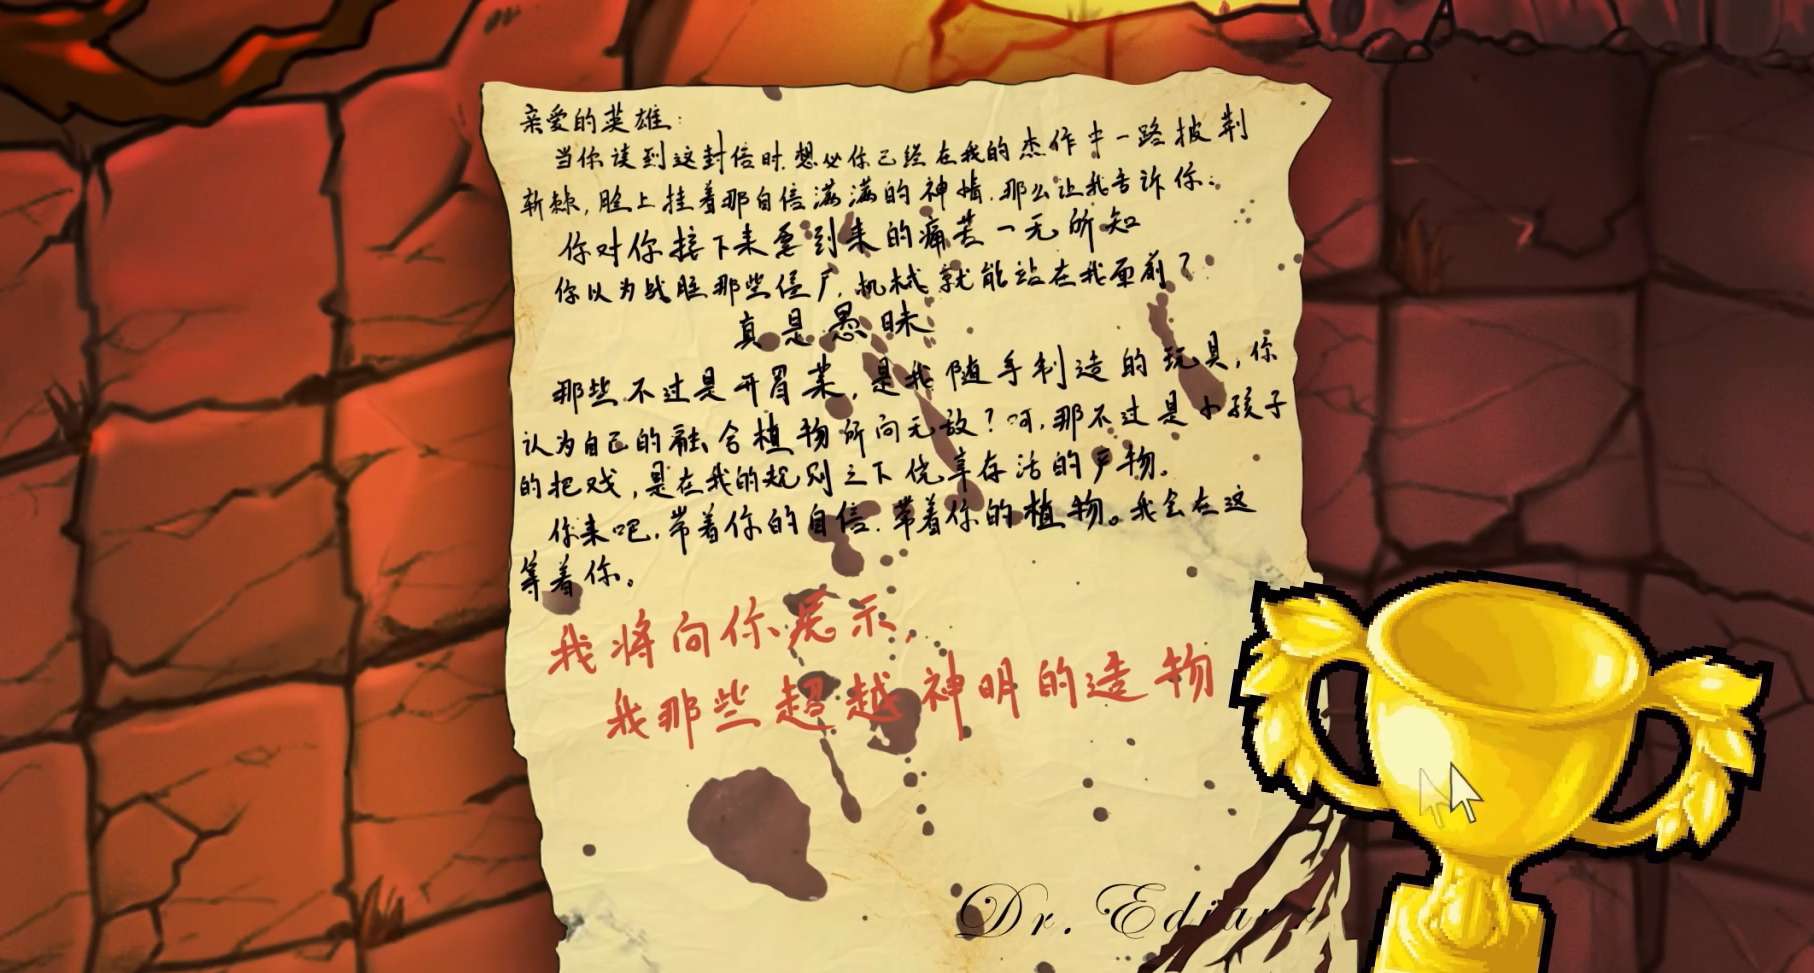 亲爱的英雄:
当你读到这封信时.想必你已经在我的杰作中一路披荆
斩棘,脸上挂着那自信满满的神情.那么让我告诉你:
你对你接下来要到来的痛苦一无所知
你以为战胜那些僵尸,机械就能站在我面前?
真是愚昧
那些不过是开胃菜,是我随手制造的玩具,你
认为自己的融合植物所向无敌?呵,那不过是小孩子
的把戏,是在我的规则之下侥幸存活的产物。
你来吧.带着你的自信.带着你的植物。我会在这
等着你。
我将向你展示,
我那些超越神明的造物
Dr.